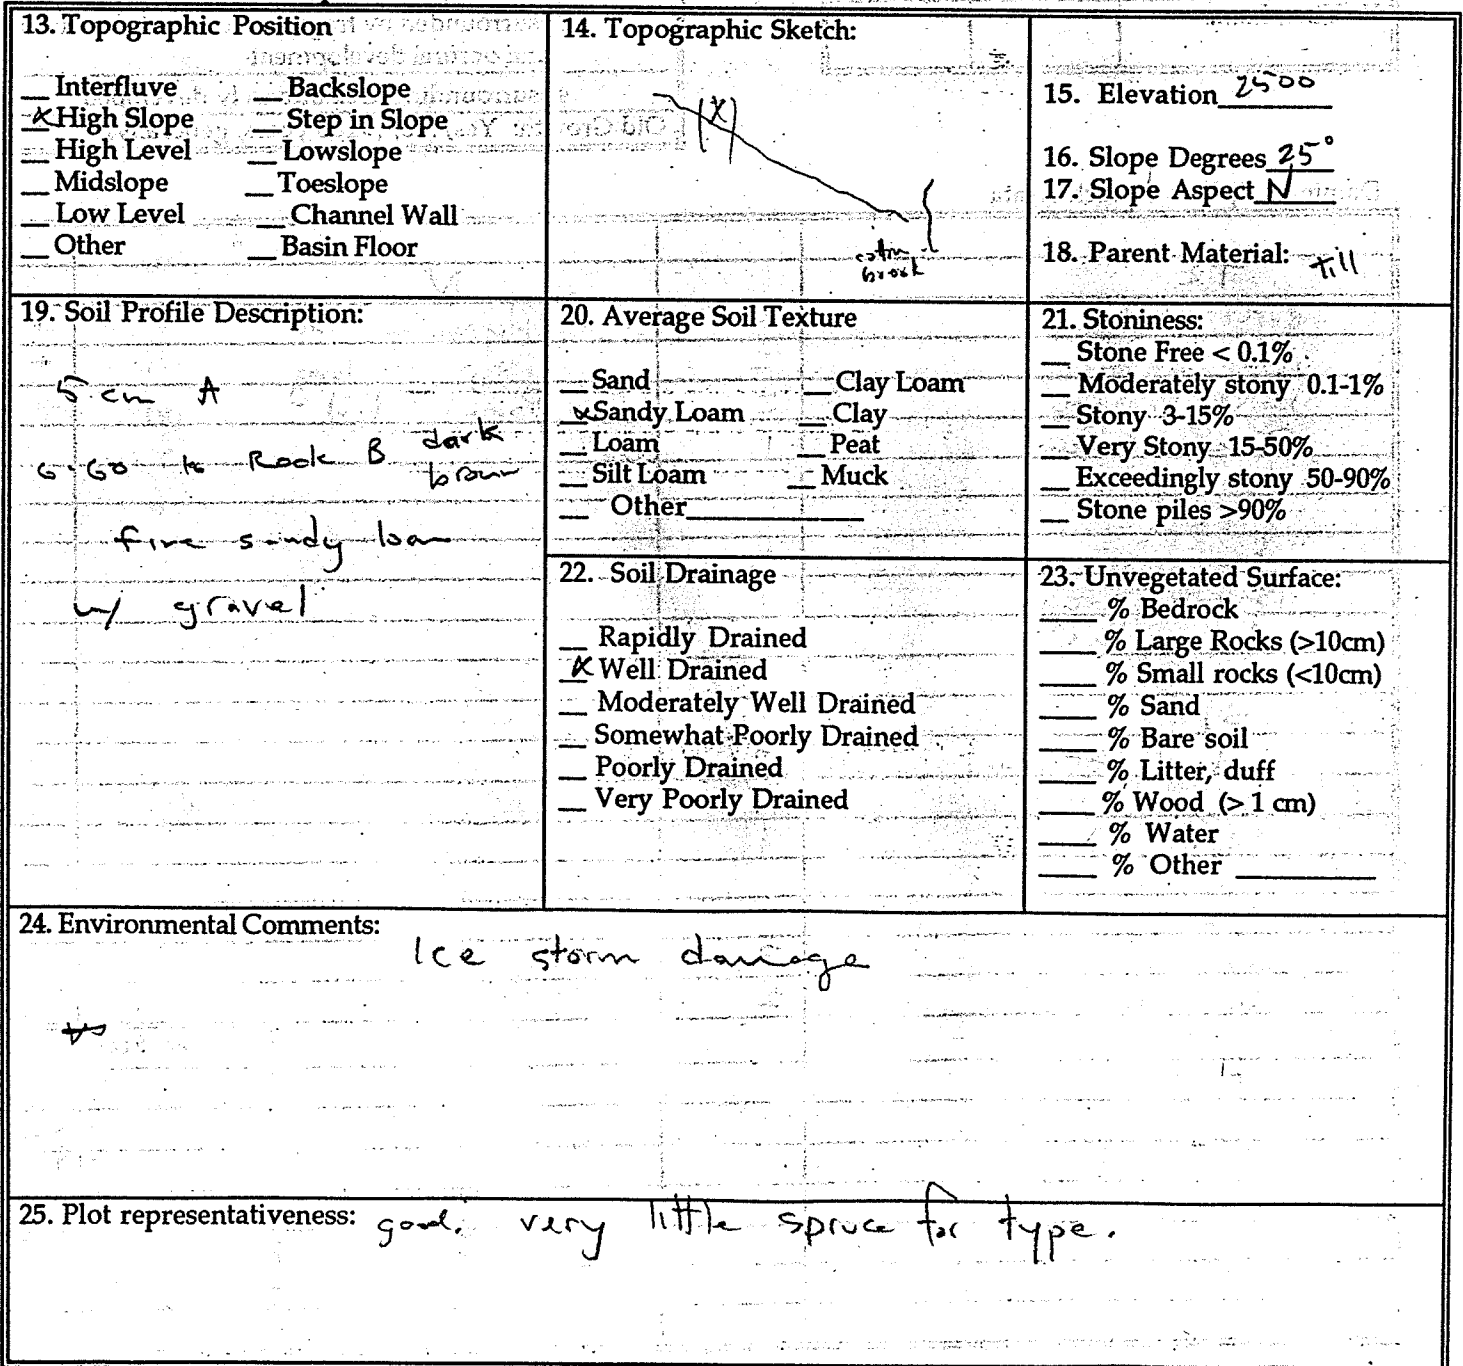 13. Topographic Position
__ Interfluve __ Backslope
X High Slope __ Step in Slope
__ High Level __ Lowslope
__ Midslope __ Toeslope
__ Low Level __ Channel Wall
__ Other __ Basin Floor
14. Topographic Sketch:
(X)
brook
15. Elevation 2500
16. Slope Degrees 25°
17. Slope Aspect N
18. Parent Material: till
19. Soil Profile Description:
5 cm A
6-60 to Rock B dark
brown
fine sandy loam
w/ gravel
20. Average Soil Texture
__ Sand __ Clay Loam
x Sandy Loam __ Clay
__ Loam __ Peat
__ Silt Loam __ Muck
__ Other__________
21. Stoniness:
__ Stone Free < 0.1%
__ Moderately stony 0.1-1%
__ Stony 3-15%
__ Very Stony 15-50%
__ Exceedingly stony 50-90%
__ Stone piles >90%
22. Soil Drainage
__ Rapidly Drained
X Well Drained
__ Moderately Well Drained
__ Somewhat Poorly Drained
__ Poorly Drained
__ Very Poorly Drained
23. Unvegetated Surface:
____ % Bedrock
____ % Large Rocks (>10cm)
____ % Small rocks (<10cm)
____ % Sand
____ % Bare soil
____ % Litter, duff
____ % Wood (> 1 cm)
____ % Water
____ % Other ________
24. Environmental Comments:
Ice storm damage
25. Plot representativeness: good. very little spruce for type.